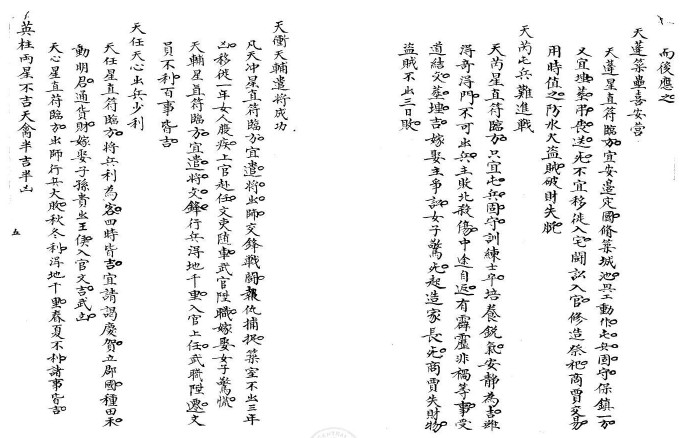 而後應之
天蓬築壘喜安營
天蓬星直符臨方宜安邊定國修築城池興工動作屯兵固守保鎮一方
又宜埋葬弔喪送死不宜移徙入宅鬪訟入官修造祭祀商賈交易
用時值之防水火盜賊破財失脫
天芮屯兵難進戰
天芮星直符臨方只宜屯兵固守訓練士卒培養銳氣安靜為吉雖
得奇得門不可出兵主敗北殺傷中途自返有霹靂非禍等事受
道結交葬埋吉嫁娶主爭訟女子驚死起造家長死商賈失財物
盜賊不出三日敗
天衝天輔遣將成功
凡天冲星直符臨方宜遣將出師交鋒戰鬪報仇捕捉築室不出三年
凶移徙一年女人股疾上官赴任文吏隨車武官陞職嫁娶女子驚慌
天輔星直符臨方宜遣將交鋒行兵得地千里入官上任武職陞遷文
員不利百事皆吉
天任天心出兵少利
天任星直符臨方將兵利為客四時皆吉宜請謁慶賀立郡國種田禾
動明君通貨財嫁娶子孫貴出王侯入官文吉武凶
天心星直符臨方出師行兵大敗秋冬利得地千里春夏不利諸事皆吉
英柱兩星不吉天禽半吉半凶
五